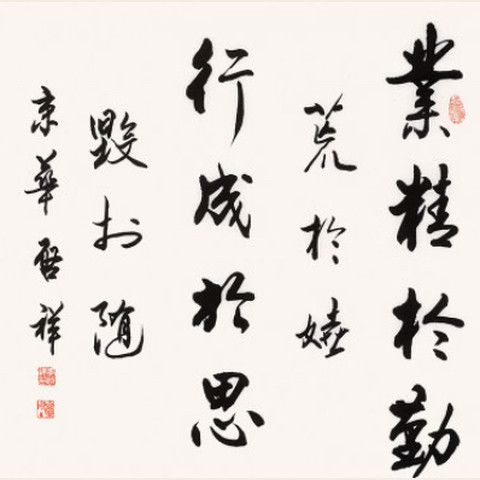 業精於勤
荒於嬉
行成於思
毀於随
京華啓祥